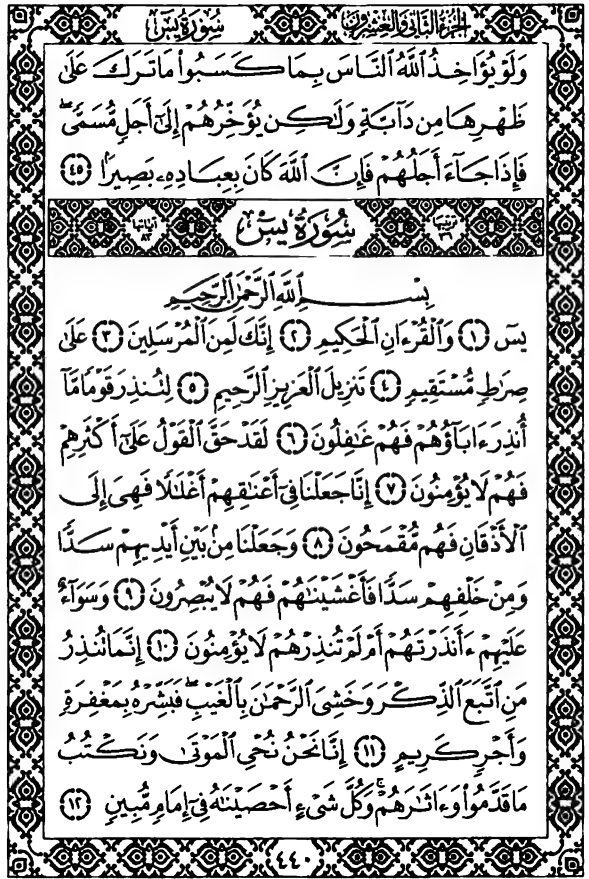 الجزء الثاني والعشرون
سورة يس
وَلَوْ يُؤَاخِذُ ٱللَّهُ ٱلنَّاسَ بِمَا كَسَبُوا۟ مَا تَرَكَ عَلَىٰ
ظَهْرِهَا مِن دَآبَّةٍ وَلَـٰكِن يُؤَخِّرُهُمْ إِلَىٰٓ أَجَلٍ مُّسَمًّى ۖ
فَإِذَا جَآءَ أَجَلُهُمْ فَإِنَّ ٱللَّهَ كَانَ بِعِبَادِهِۦ بَصِيرًۢا ﴿٤٥﴾
ترتيبها ٣٦
سُورَةُ يسٓ
آياتها ٨٣
بِسْمِ ٱللَّهِ ٱلرَّحْمَـٰنِ ٱلرَّحِيمِ
يسٓ ﴿١﴾ وَٱلْقُرْءَانِ ٱلْحَكِيمِ ﴿٢﴾ إِنَّكَ لَمِنَ ٱلْمُرْسَلِينَ ﴿٣﴾ عَلَىٰ
صِرَٰطٍ مُّسْتَقِيمٍ ﴿٤﴾ تَنزِيلَ ٱلْعَزِيزِ ٱلرَّحِيمِ ﴿٥﴾ لِتُنذِرَ قَوْمًا مَّآ
أُنذِرَ ءَابَآؤُهُمْ فَهُمْ غَـٰفِلُونَ ﴿٦﴾ لَقَدْ حَقَّ ٱلْقَوْلُ عَلَىٰٓ أَكْثَرِهِمْ
فَهُمْ لَا يُؤْمِنُونَ ﴿٧﴾ إِنَّا جَعَلْنَا فِىٓ أَعْنَـٰقِهِمْ أَغْلَـٰلًا فَهِىَ إِلَى
ٱلْأَذْقَانِ فَهُم مُّقْمَحُونَ ﴿٨﴾ وَجَعَلْنَا مِنۢ بَيْنِ أَيْدِيهِمْ سَدًّا
وَمِنْ خَلْفِهِمْ سَدًّا فَأَغْشَيْنَـٰهُمْ فَهُمْ لَا يُبْصِرُونَ ﴿٩﴾ وَسَوَآءٌ
عَلَيْهِمْ ءَأَنذَرْتَهُمْ أَمْ لَمْ تُنذِرْهُمْ لَا يُؤْمِنُونَ ﴿١٠﴾ إِنَّمَا تُنذِرُ
مَنِ ٱتَّبَعَ ٱلذِّكْرَ وَخَشِىَ ٱلرَّحْمَـٰنَ بِٱلْغَيْبِ ۖ فَبَشِّرْهُ بِمَغْفِرَةٍ
وَأَجْرٍ كَرِيمٍ ﴿١١﴾ إِنَّا نَحْنُ نُحْىِ ٱلْمَوْتَىٰ وَنَكْتُبُ
مَا قَدَّمُوا۟ وَءَاثَـٰرَهُمْ ۚ وَكُلَّ شَىْءٍ أَحْصَيْنَـٰهُ فِىٓ إِمَامٍ مُّبِينٍ ﴿١٢﴾
٤٤٠